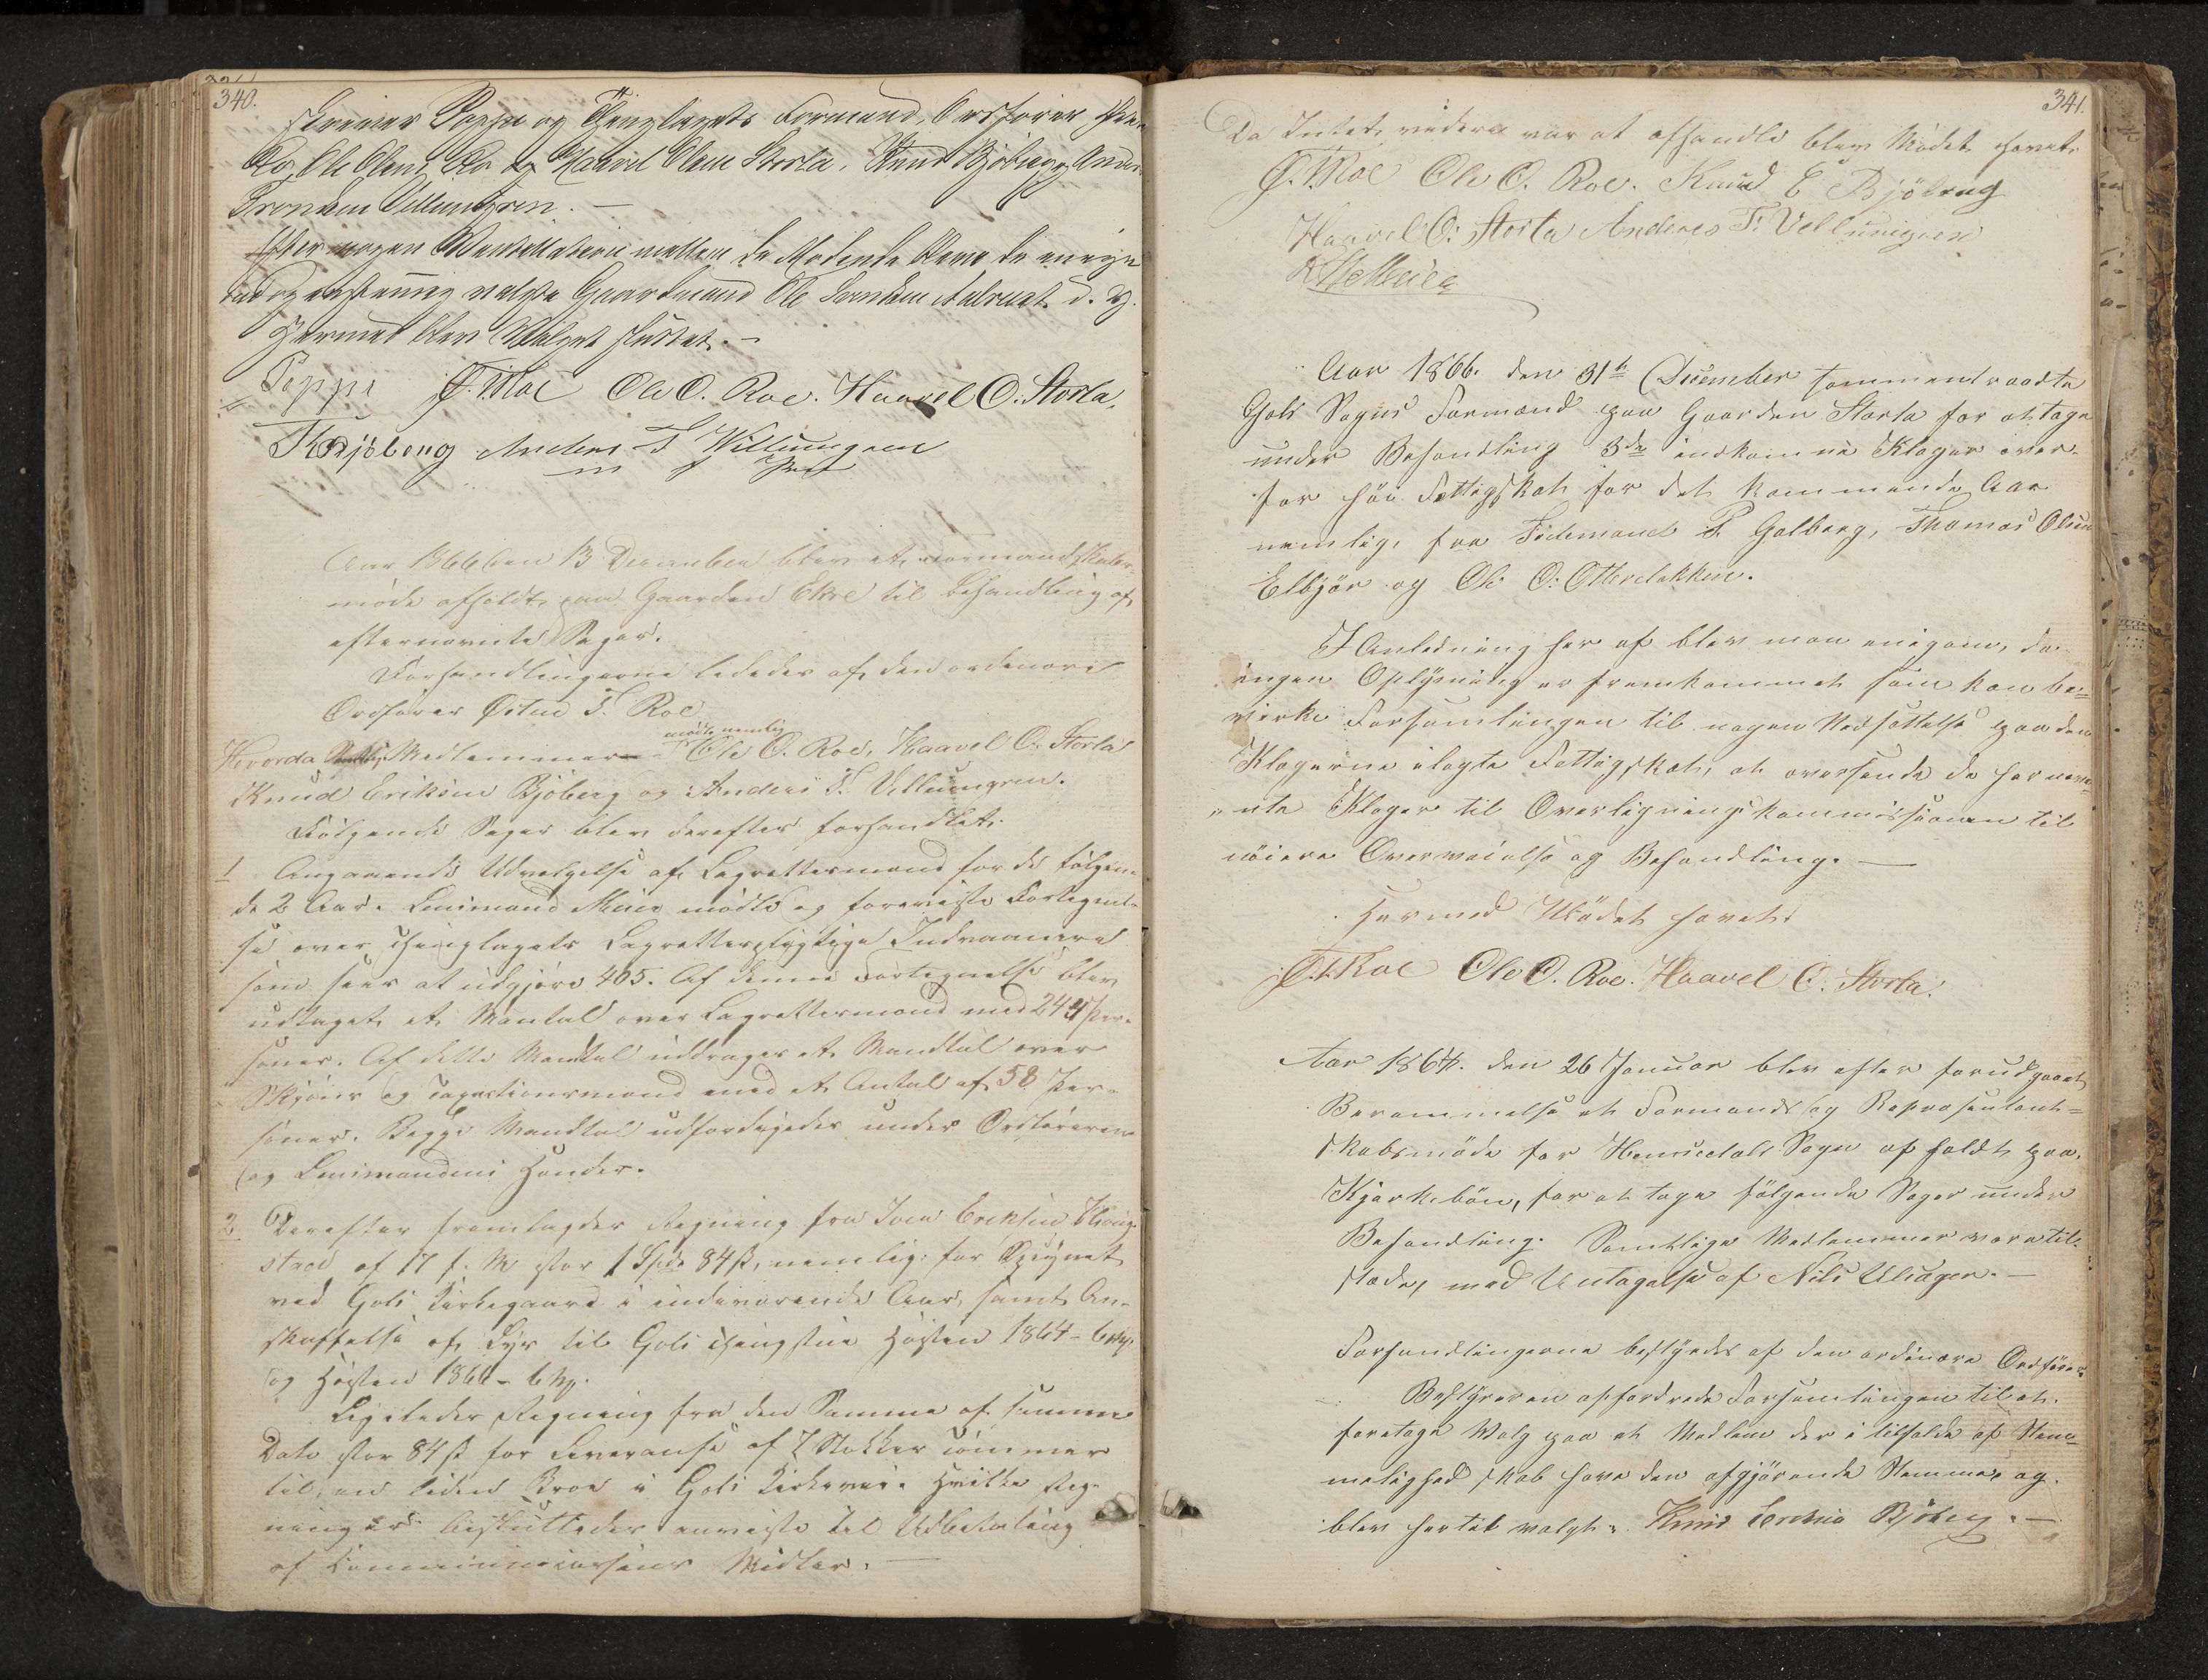 340.
Poppe og Thinglagets Formænd, Ordfører
Roe, Ole Olsen Roe og Haavel Olsen Storla, Knud Bjøberg, Anders
Trondsen Villungren. —
Efter nogen mellem de Mødende bleve de enige
valgte Gaardmand Ole
Hermed blev Valget sluttet. —
Poppe Ø. T. Roe Ole O. Roe. Haavel O. Storla,
K Bjöberg Anders T Willungren
m f Pen
Aar 1866 den 13 December blev et Formandskabs-
møde afholdt paa Gaarden Ekre til Behandling af
efternævnte Sager.
Forhandlingerne lededes af den ordinære
Ordfører Østen T. Roe
mødte nemlig
Hvorda Medlemmer Ole O. Roe, Haavel O. Storla
Knud Eriksen Bjøberg og Anders T. Villungren.
Følgende Sager blev derefter forhandlet.
1 Angaaende Udvælgelse af Lagrettesmænd for de følgen-
de 2 Aar. Lensmand Meier mødte og foreviste Fortegnel-
se over Thinglagets Lagrettespligtige Indvaanere
som sees at udgjøre 405. Af denne Fortegnelse blev
udtaget et Mantal over Lagrettesmænd med 244 Per-
soner. Af dette Mandtal uddrages et Mandtal over
Skjøns og Taxationsmænd med et Antal af 58 Per-
soner. Begge Mandtal udfærdigedes under Ordførerens
og Lensmandens Hænder.
2 Derefter fremlagdes Regning fra Iver Eriksen
stad af 17 f. M. stor 1 Spd. 84 ß, nemlig: for
ved Gols Kirkegaard i indeværende Aar, samt An-
skaffelse af Lys til Gols Thingstue Høsten 1864 -
og Høsten 1866 -
Ligeledes Regning fra den Samme af samme
Dato stor 84 ß for Leveranse af 7 Stokker Tømmer
til en liden Broe i Gols Kirkevei. Hvilke Reg-
ninger besluttedes anviste til Udbetaling
af Kommunekassens Midler. —
341.
Da Intet videre var at afhandle blev Mødet hævet.
Ø. T. Roe Ole O. Roe. Knud E Bjöberg
Haavel O: Storla Anders T: Vellungren
Meier
Aar 1866. den 31te December sammentraadte
Gols Sogns Formænd paa Gaarden Storla for at tage
under Behandling 3de indkomne Klager over
for høi Fattigskat for det kommende Aar
nemlig, fra Tidemand P. Golberg, Thomas Olsen
Elbjør og Ole O: Otterdokken.
I Anledning her af blev man enigom, da
ingen Oplysning er fremkommet som kan be-
virke Forsamlingen til nogen Nedsættelse paa den
Klagerne ilagte Fattigskat, at oversende de her næv-
nte Klager til Overligningskommissionen til
nøiere Overveielse og Behandling. —
Hermed Mødet hævet.
Ø. T. Roe Ole O. Roe. Haavel O. Storla.
Aar 1867. den 26 Januar blev efter forudgaaet
Berammelse et Formands og Repræsentant-
skabsmøde for Hemsedals Sogn afholdt paa
Kjerkebøn, for at tage følgende Sager under
Behandling. Samtlige Medlemmer vare til-
stede, med Untagelse af Nils Ulsager. —
Forhandlingerne bestyredes af den ordinære Ordfører
Bestyreren opfordrede Forsamlingen til at
foretage Valg paa et Medlem der i tilfælde af Stem-
melighed skal have den afgjørende Stemme, og
blev hertil valgt: Knud Eriksen Bjöberg. —